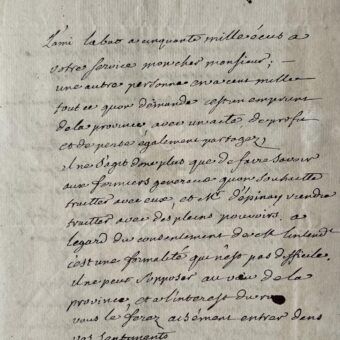 l'ami labat a cinquante mille écus a
votre service mon cher monsieur ; —
une autre personne en a cent mille
tout ce quon demande c'est un emprunt
de la province avec un acte de profit
et de perte également partagez
il ne s'agit donc plus que de faire savoir
aux fermiers generaux quon souhaitte
traitter avec eux, et Mr d'épinay viendra
traitter avec des pleins pouvoirs. a
legard du consentement de Mr lintend
c'est une formalité qui n'est pas difficile
il ne peut s'opposer au vœu de la
province, et a l'interest du roy
vous le ferez aisément entrer dans
vos sentiments